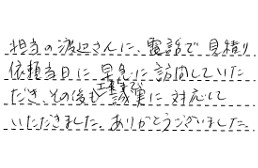 担当の渡辺さんに、電話で見積り
依頼当日に早急に訪問していた
だき、その後も工事まで誠実に対応して
いただきました。ありがとうございました。